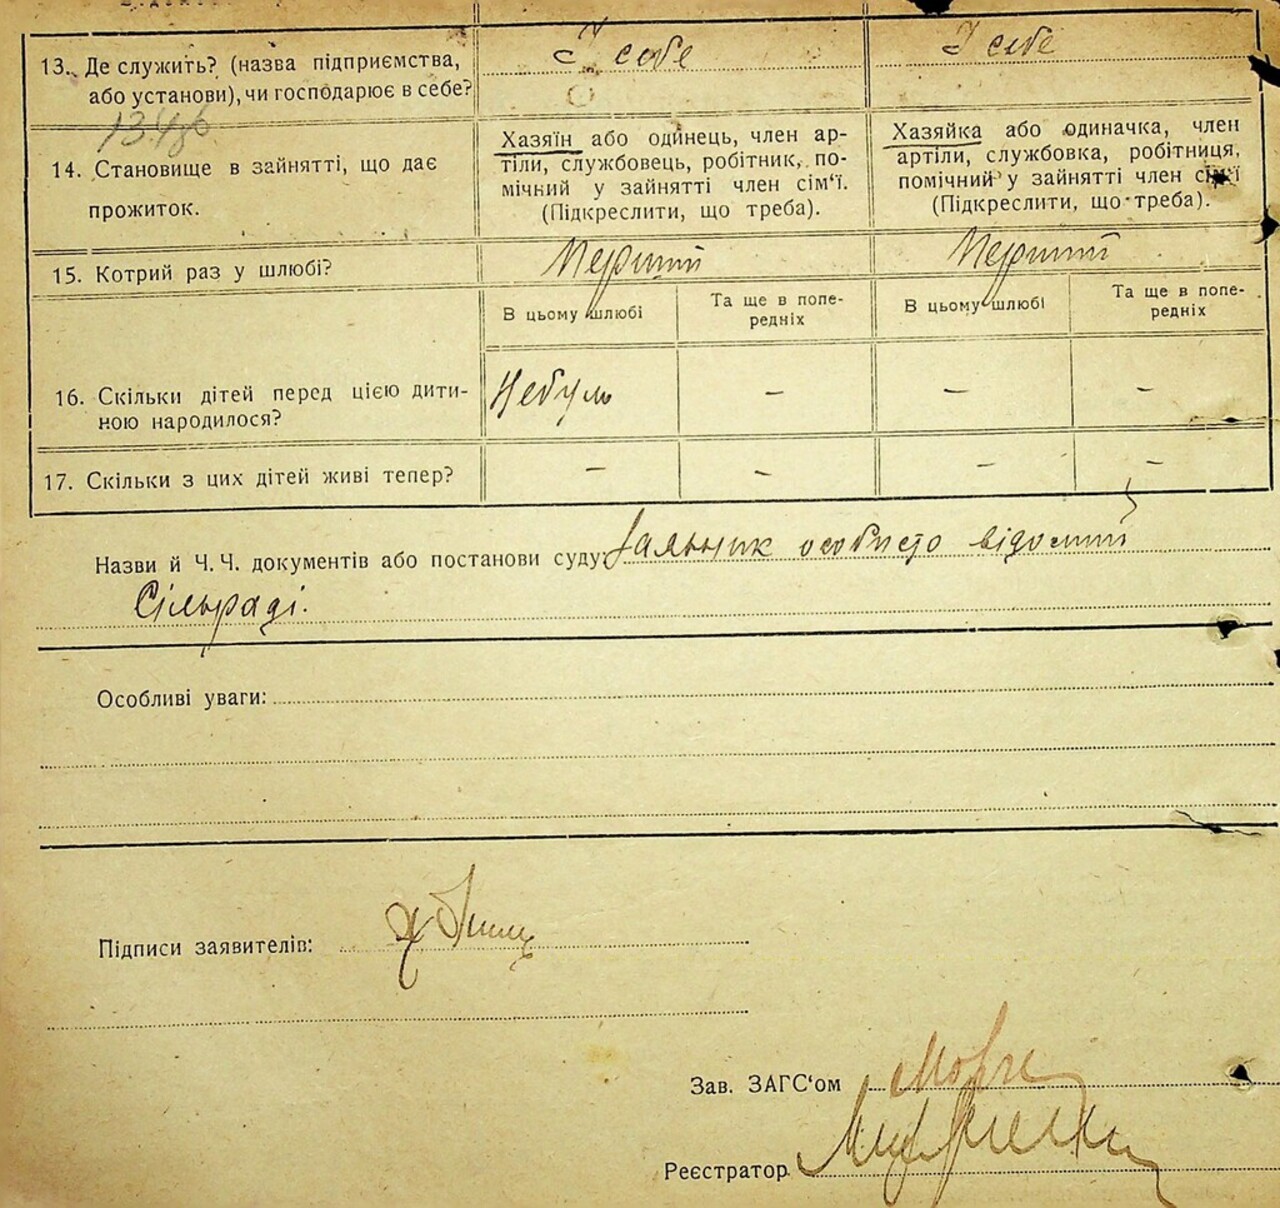 13. Де служить? (назва підприємства, або установи), чи господарює в себе?
У себе
У себе
14. Становище в зайнятті, що дає прожиток.
Хазяїн або одинець, член ар-
тіли, службовець, робітник, по-
мічний у зайнятті член сім'ї.
(Підкреслити, що треба).
Хазяйка або одиначка, член
артіли, службовка, робітниця,
помічний у зайнятті член сім'ї
(Підкреслити, що треба).
15. Котрий раз у шлюбі?
Перший
Перший
В цьому шлюбі
Та ще в попе-
редніх
В цьому шлюбі
Та ще в попе-
редніх
16. Скільки дітей перед цією дити-
ною народилося?
Небуло
—
—
—
17. Скільки з цих дітей живі тепер?
—
—
—
—
Назви й Ч. Ч. документів або постанови суду: Заявник особисто відомий
Сільраді.
Особливі уваги:
Підписи заявителів:
Зав. ЗАГС'ом
Реєстратор